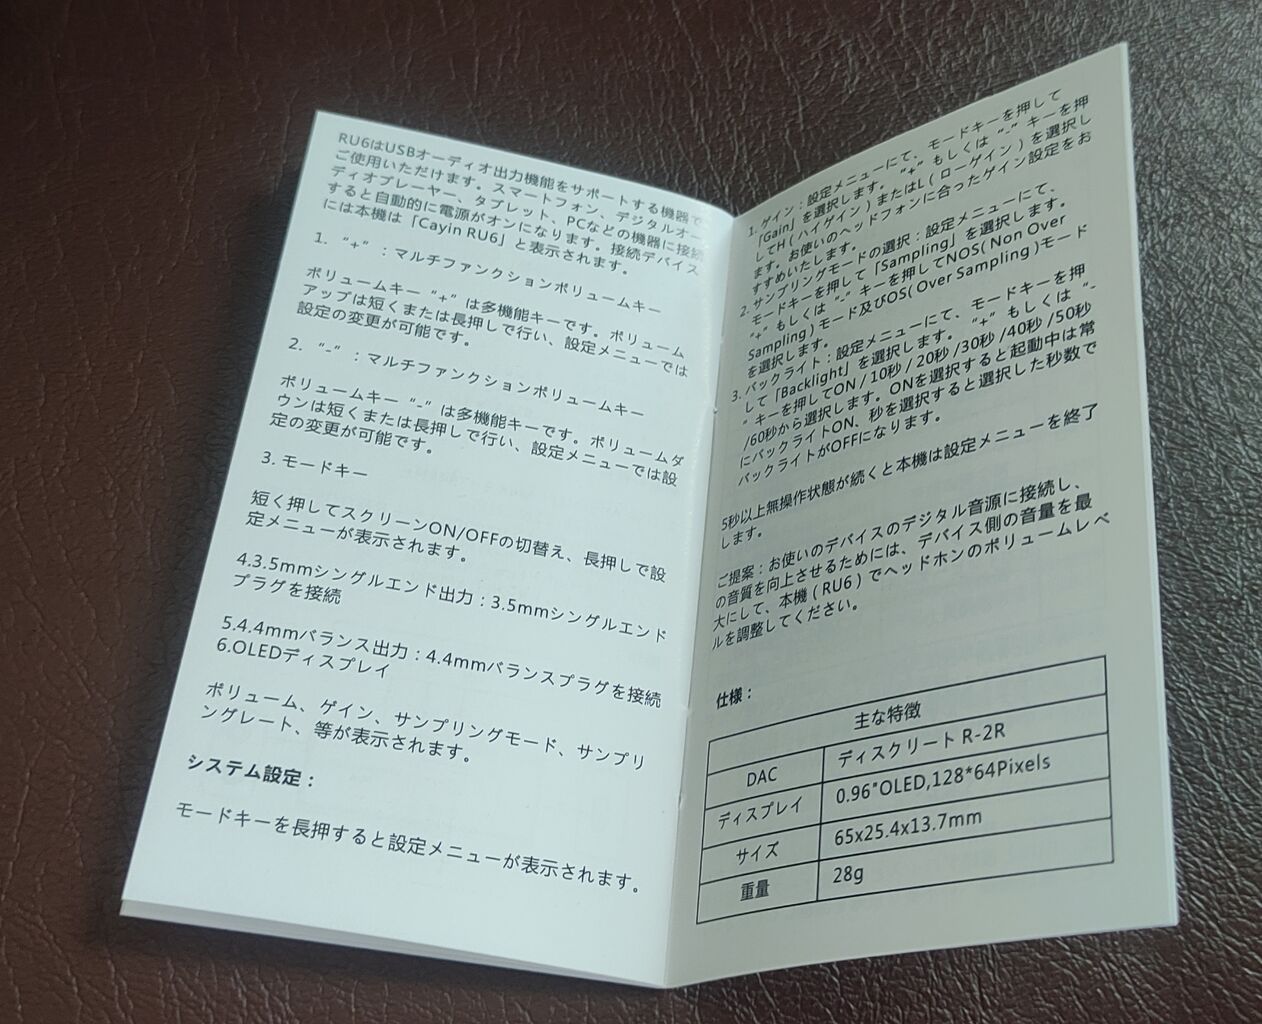 RU6はUSBオーディオ出力機能をサポートする機器で
ご使用いただけます。スマートフォン、デジタルオー
ディオプレーヤー、タブレット、PCなどの機器に接続
すると自動的に電源がオンになります。接続デバイス
には本機は「Cayin RU6」と表示されます。
1. “+” : マルチファンクションボリュームキー
ボリュームキー “+” は多機能キーです。ボリューム
アップは短くまたは長押しで行い、設定メニューでは
設定の変更が可能です。
2. “-” : マルチファンクションボリュームキー
ボリュームキー “-” は多機能キーです。ボリュームダ
ウンは短くまたは長押しで行い、設定メニューでは設
定の変更が可能です。
3. モードキー
短く押してスクリーンON/OFFの切替え、長押しで設
定メニューが表示されます。
4.3.5mmシングルエンド出力：3.5mmシングルエンド
プラグを接続
5.4.4mmバランス出力：4.4mmバランスプラグを接続
6.OLEDディスプレイ
ボリューム、ゲイン、サンプリングモード、サンプリ
ングレート、等が表示されます。
システム設定：
モードキーを長押すると設定メニューが表示されます。
1. ゲイン：設定メニューにて、モードキーを押して
「Gain」を選択します。 “+” もしくは “-” キーを押
してH ( ハイゲイン ) またはL ( ローゲイン ) を選択し
ます。お使いのヘッドフォンに合ったゲイン設定をお
すすめいたします。
2. サンプリングモードの選択：設定メニューにて、
モードキーを押して「Sampling」を選択します。
“+” もしくは “-” キーを押してNOS( Non Over
Sampling ) モード及びOS( Over Sampling )モード
を選択します。
3. バックライト：設定メニューにて、モードキーを押
して「Backlight」を選択します。 “+” もしくは “-
” キーを押してON / 10秒 / 20秒 /30秒 /40秒 /50秒
/60秒から選択します。ONを選択すると起動中は常
にバックライトON、秒を選択すると選択した秒数で
バックライトがOFFになります。
5秒以上無操作状態が続くと本機は設定メニューを終了
します。
ご提案：お使いのデバイスのデジタル音源に接続し、
の音質を向上させるためには、デバイス側の音量を最
大にして、本機 ( RU6 ) でヘッドホンのボリュームレベ
ルを調整してください。
仕様：
主な特徴
DAC ディスクリート R-2R
ディスプレイ 0.96"OLED,128*64Pixels
サイズ 65x25.4x13.7mm
重量 28g